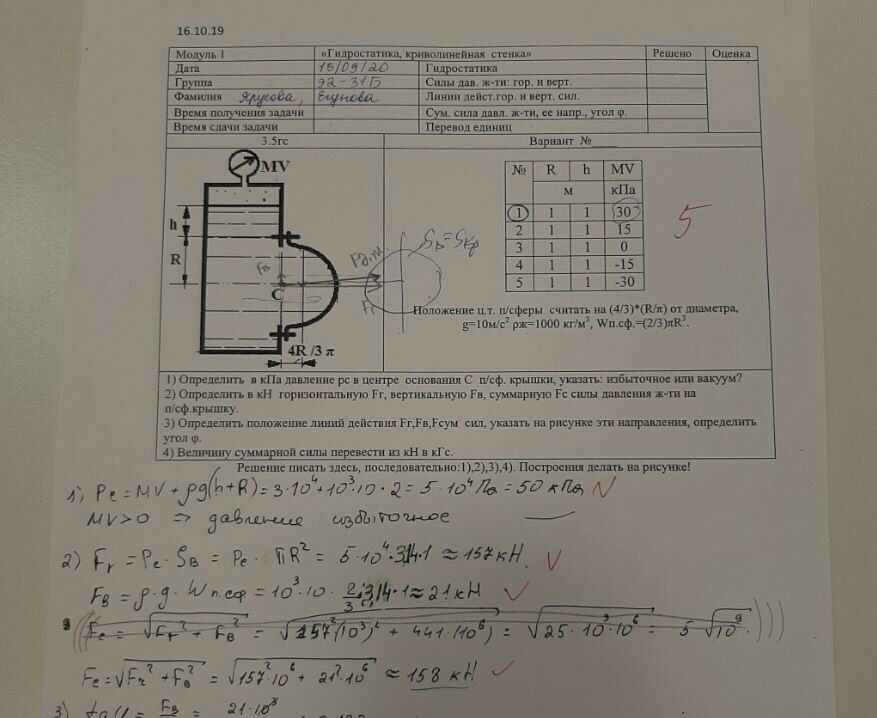 16.10.19
Модуль 1 «Гидростатика, криволинейная стенка» Решено Оценка
Дата 15/09/20 Гидростатика
Группа 92-31Б Силы дав. ж-ти: гор. и верт.
Фамилия Ярусова, Егунова Линии дейст.гор. и верт. сил.
Время получения задачи Сум. сила давл. ж-ти, ее напр., угол φ.
Время сдачи задачи Перевод единиц
3.5гс Вариант №
MV
h
R
C
4R /3 π
Fв
Fд.ж.
Fг
№ R h MV
м кПа
1 1 1 30
2 1 1 15
3 1 1 0
4 1 1 -15
5 1 1 -30
5
Положение ц.т. п/сферы считать на (4/3)*(R/π) от диаметра,
g=10м/с² ρж=1000 кг/м³, Wп.сф.=(2/3)πR³.
1) Определить в кПа давление рс в центре основания С п/сф. крышки, указать: избыточное или вакуум?
2) Определить в кН горизонтальную Fг, вертикальную Fв, суммарную Fс силы давления ж-ти на
п/сф.крышку.
3) Определить положение линий действия Fг,Fв,Fсум сил, указать на рисунке эти направления, определить
угол φ.
4) Величину суммарной силы перевести из кН в кГс.
Решение писать здесь, последовательно:1),2),3),4). Построения делать на рисунке!
1) Pc = MV + ρg(h+R) = 3·10⁴+10³·10·2 = 5·10⁴ Па = 50 кПа
MV>0 ⇒ давление избыточное
2) Fг = Pc · Sв = Pc · πR² = 5·10⁴·3,14·1 ≈ 157 кН.
Fв = ρ·g·Wп.сф = 10³·10·2/3·3,14·1 ≈ 21 кН
Fc = √Fг² + Fв² = √157²(10³)² + 441·(10⁶) = √25·10³·10⁶ = 5√10⁹
Fc = √Fг² + Fв² = √157²·10⁶ + 21²·10⁶ ≈ 158 кН